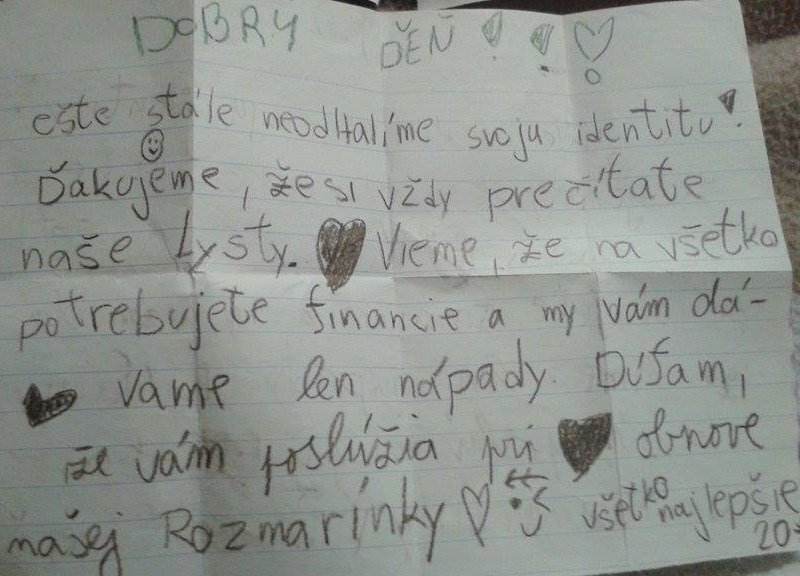 DOBRY DĚŇ!!!
ešte stále neodhalíme svoju identitu!
Ďakujeme, že si vždy prečítate
naše Lysty. Vieme, že na všetko
potrebujete financie a my vám dá-
vame len nápady. Dúfam,
že vám poslúžia pri obnove
našej Rozmarínky všetko najlepšie